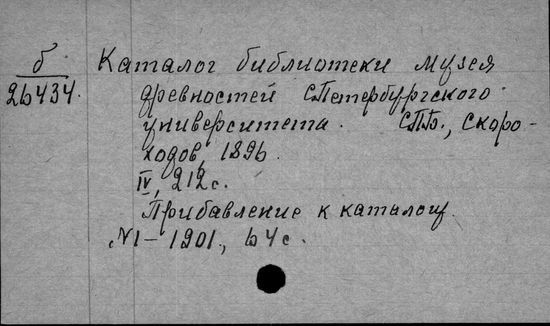 б Каталог библиотеки музея
26434. древностей СПетербургского
университета. СПБ., Скоро-
ходов, 1896.
IV, 212 с.
Прибавление к каталогу.
№1 – 1901., 64 с.